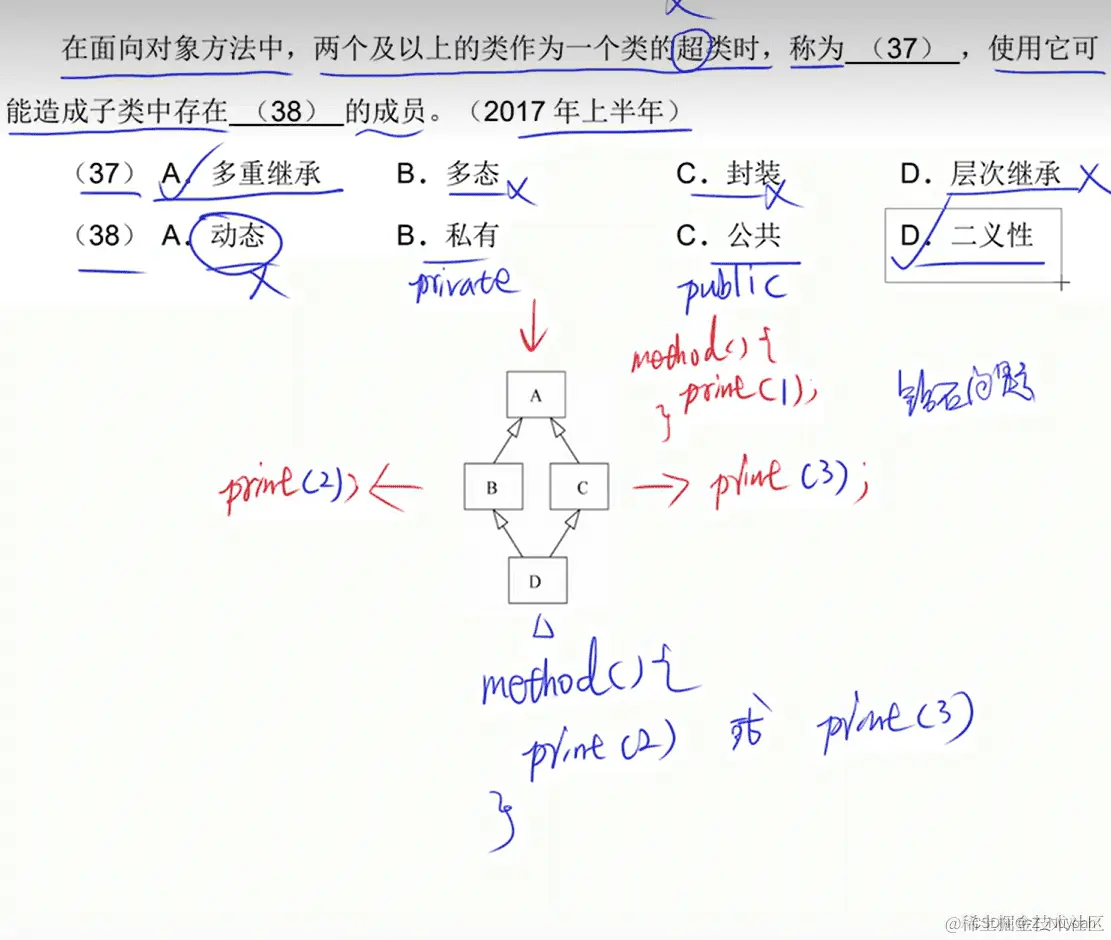 在面向对象方法中，两个及以上的类作为一个类的超类时，称为 （37） ，使用它可
能造成子类中存在 （38） 的成员。（2017 年上半年）
（37） A．多重继承 B．多态 C．封装 D．层次继承
（38） A．动态 B．私有 C．公共 D．二义性
private public
method() {
print(1);
}
钻石问题
A
print(2); B C print(3);
D
method() {
print(2) 或 print(3)
}
@稀土掘金技术社区